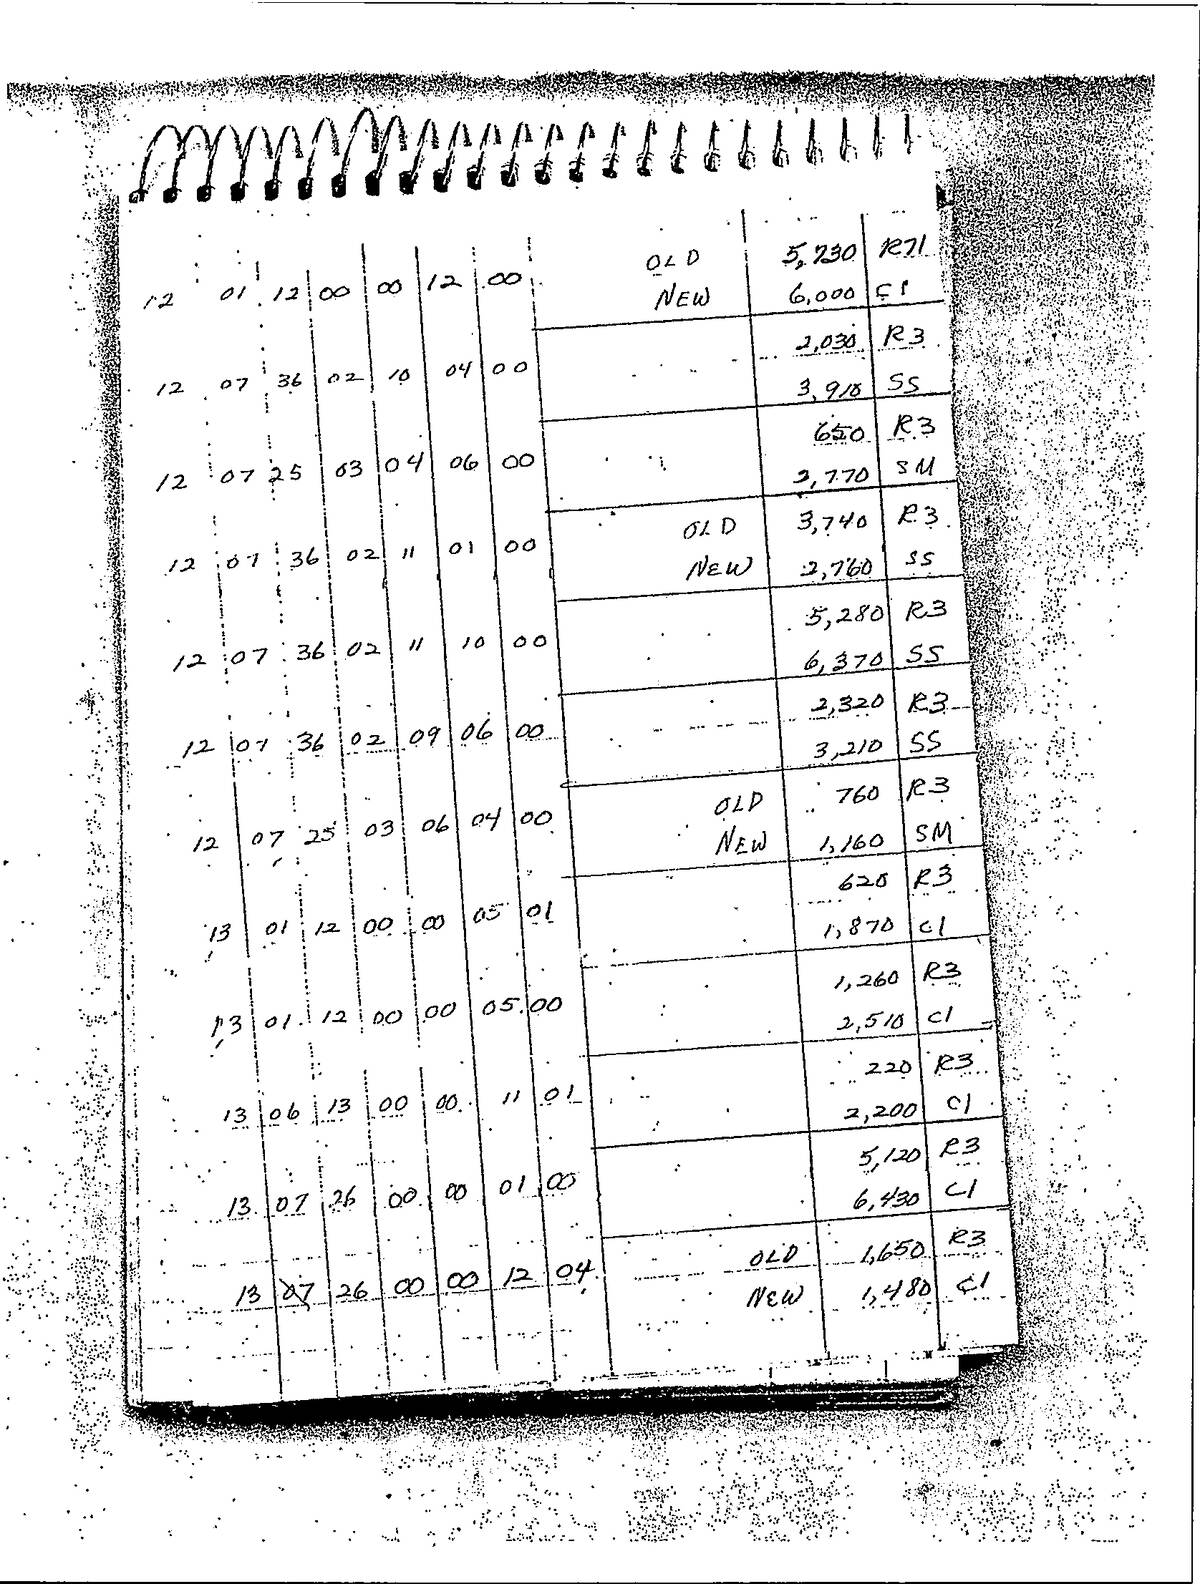 OLD 5,730 R71
12 01 12 00 00 12 00 NEW 6,000 C1
2,030 R3
12 07 36 02 10 04 00 3,910 SS
650 R3
12 07 25 03 04 06 00 2,770 SM
OLD 3,740 R3
12 07 36 02 11 01 00 NEW 2,760 SS
5,280 R3
12 07 36 02 11 10 00 6,370 SS
2,320 R3
12 07 36 02 09 06 00 3,210 SS
OLD 760 R3
12 07 25 03 06 04 00 NEW 1,160 SM
620 R3
13 01 12 00 00 05 01 1,870 C1
1,260 R3
13 01 12 00 00 05 00 2,510 C1
220 R3
13 06 13 00 00 11 01 2,200 C1
5,120 R3
13 07 26 00 00 01 00 6,430 C1
OLD 1,650 R3
13 07 26 00 00 12 04 NEW 1,480 C1